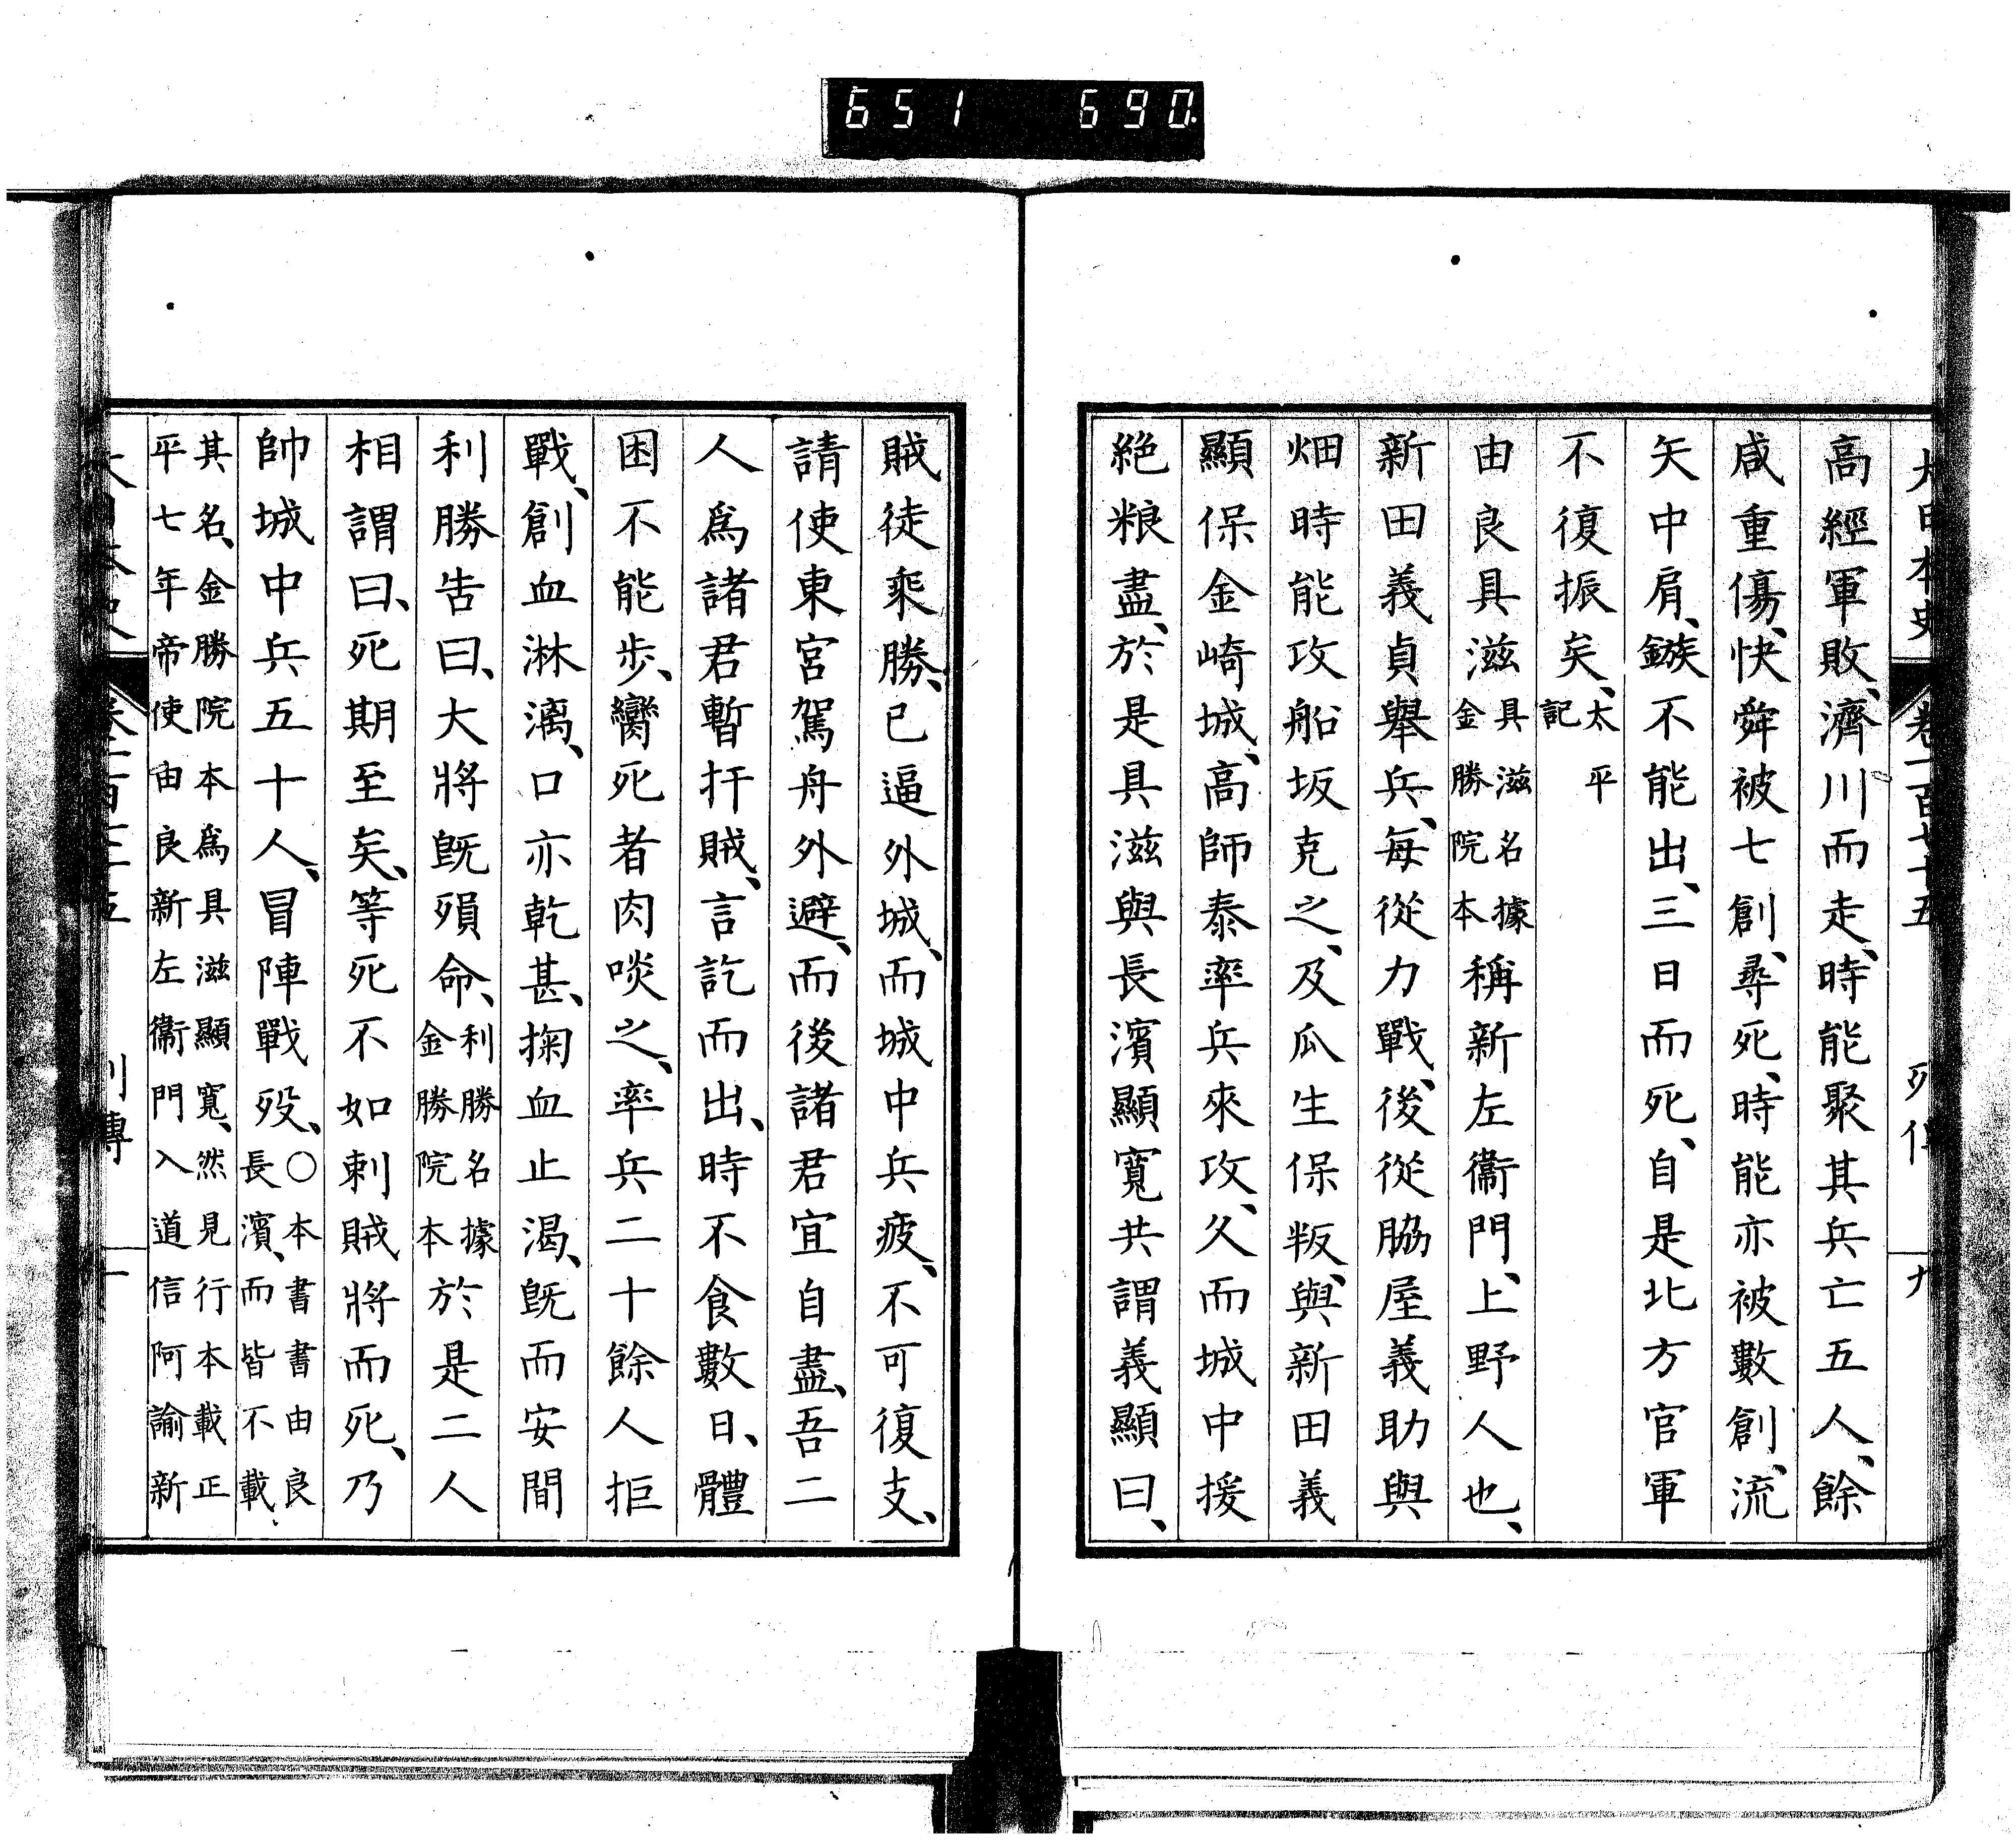 651 690
大日本史 卷一百七十五 列傳 九
高經軍敗、濟川而走、時能聚其兵亡五人、餘
咸重傷、快舜被七創、尋死、時能亦被數創、流
矢中肩、鏃不能出、三日而死、自是北方官軍
不復振矣、太平記
由良具滋具滋名據金勝院本稱新左衞門、上野人也、
新田義貞舉兵、每從力戰、後從脇屋義助與
畑時能攻船坂克之、及瓜生保叛、與新田義
顯保金崎城、高師泰率兵來攻、久而城中援
絶粮盡、於是具滋與長濱顯寬共謂義顯曰、
賊徒乘勝、已逼外城、而城中兵疲、不可復支、
請使東宮駕舟外避、而後諸君宜自盡、吾二
人爲諸君暫扞賊、言訖而出、時不食數日、體
困不能步、臠死者肉啖之、率兵二十餘人拒
戰、創血淋漓、口亦乾甚、掬血止渴、旣而安間
利勝告曰、大將旣殞命、利勝名據金勝院本於是二人
相謂曰、死期至矣、等死不如刺賊將而死、乃
帥城中兵五十人、冒陣戰歿、○本書書由良長濱、而皆不載
其名、金勝院本爲具滋顯寬、然見行本載正
平七年帝使由良新左衞門入道信阿諭新